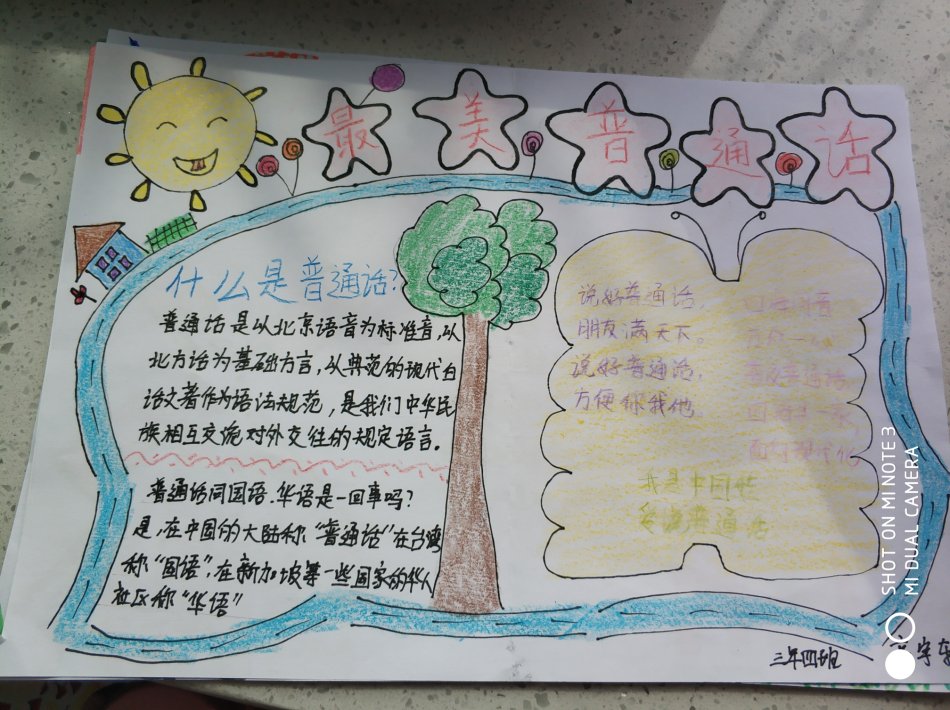 最美普通话
什么是普通话?
普通话是以北京语音为标准音,以
北方话为基础方言,以典范的现代白
话文著作为语法规范,是我们中华民
族相互交流对外交往的规定语言。
普通话同国语、华语是一回事吗?
是,在中国的大陆称“普通话”在台湾
称“国语”,在新加坡等一些国家的华人
社区称“华语”
说好普通话,
朋友满天下。
说好普通话,
方便你我他。
普及普通话
我是中国娃
爱说普通话
三年四班
SHOT ON MI NOTE 3
MI DUAL CAMERA